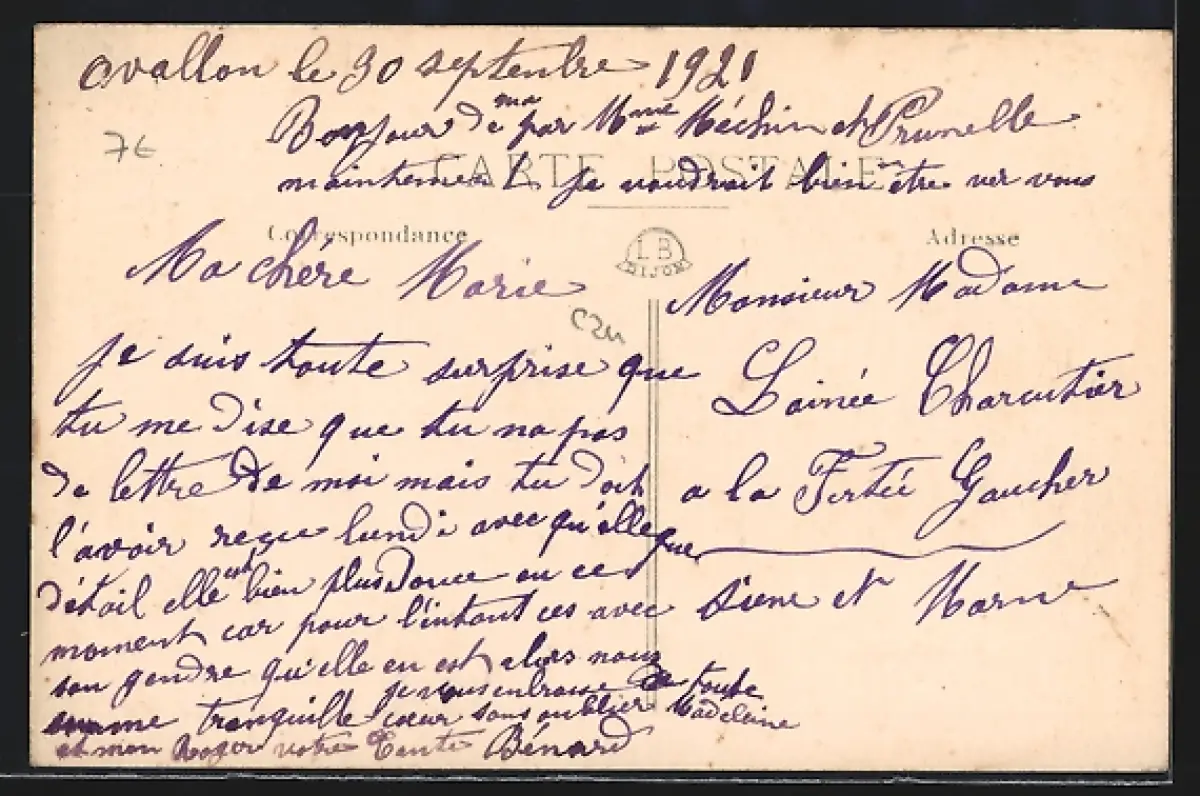 Avallon le 30 septenbre 1921
7€
Bonjour de ma par Mme Méchin et Prunelle
CARTE POSTALE
maintenent je voudrait bien être ver vous
Correspondance
Adresse
LB
DIJON
Ma chére Marie
je suis toute surprise que
tu me dise que tu na pas
de lettre de moi mais tu doit
l'avoir reçue lundi avec qu'elleque
détail elle est bien plus douce en ce
moment car pour l'intant ces avec
son gendre qu'elle en est alors nous
somme tranquille je vous enbrasse de toute
cœur sans oublier Madelaine
et mon Roger votre Tante Bénard
Monsieur Madame
Lainée Charcutier
a la Fertée Gaucher
Siene et Marne